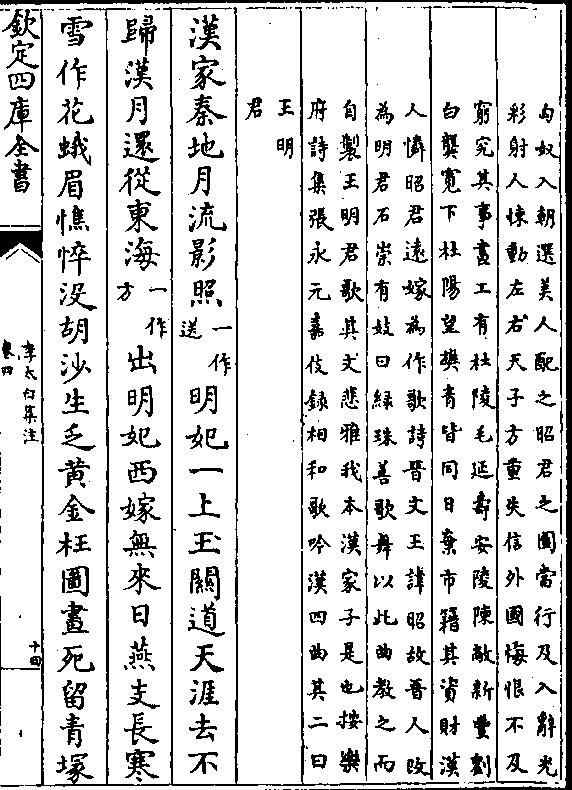 匈奴入朝選美人配之昭君之圖當行及入辭光
彩射人悚動左右天子方重失信外國悔恨不及
窮究其事畫工有杜陵毛延壽安陵陳敞新豐劉
白龔寛下杜陽望樊青皆同日棄市籍其資財漢
人憐昭君遠嫁為作歌詩晉文王諱昭故晉人改
為明君石崇有妓曰緑珠善歌舞以此曲教之而
自製王明君歌其文悲雅我本漢家子是也按樂
府詩集張永元嘉伎録相和歌吟漢四曲其二曰
王明
君
漢家秦地月流影照一作送明妃一上玉關道天涯去不
歸漢月還從東海一作方出明妃西嫁無來日燕支長寒
雪作花蛾眉憔悴没胡沙生乏黄金枉圖畫死留青塚
欽定四庫全書
李太白集注
卷四
十四